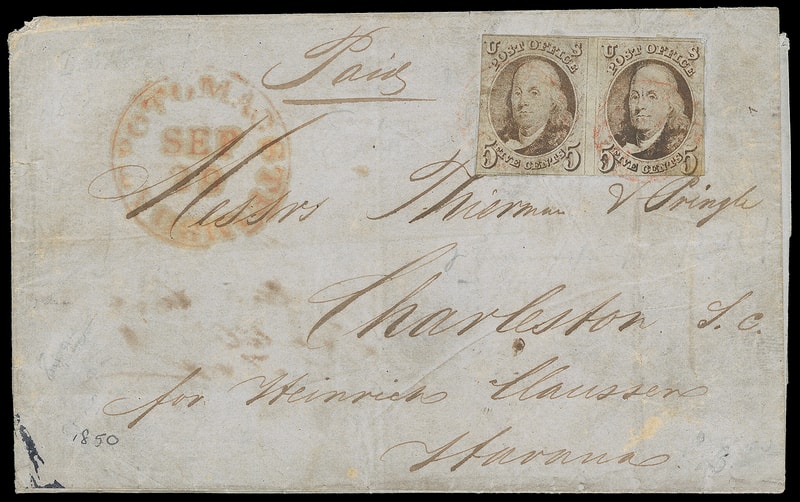 Paid
U S
POST OFFICE
5 FIVE CENTS 5
U S
POST OFFICE
5 FIVE CENTS 5
POTOMAC
SEP
28
Messrs Thierman & Pringle
Charleston S. C.
for Heinrich Claussen
Havana
1850